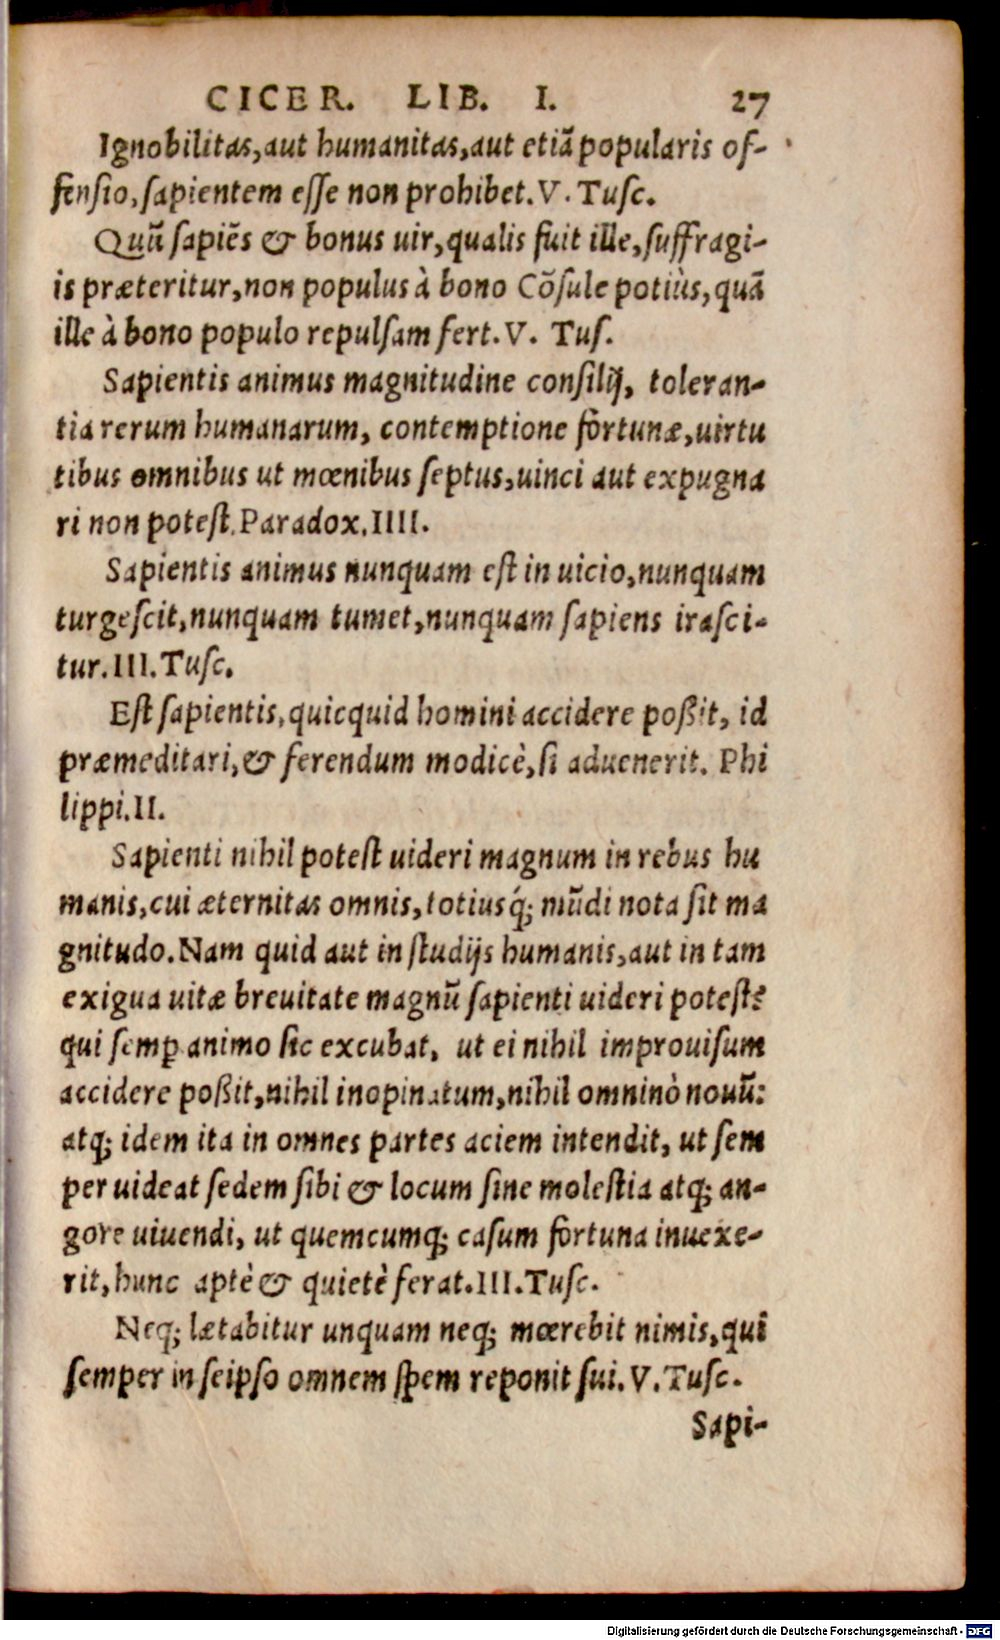 CICER. LIB. I. 27
Ignobilitas, aut humanitas, aut etiã popularis of-
fensio, sapientem esse non prohibet. V. Tusc.
Quũ sapiẽs & bonus uir, qualis fuit ille, suffragi-
is præteritur, non populus à bono Cõsule potiùs, quã
ille à bono populo repulsam fert. V. Tus.
Sapientis animus magnitudine consilij, toleran-
tia rerum humanarum, contemptione fortunæ, uirtu
tibus omnibus ut mœnibus septus, uinci aut expugna
ri non potest. Paradox. IIII.
Sapientis animus nunquam est in uicio, nunquam
turgescit, nunquam tumet, nunquam sapiens irasci-
tur. III. Tusc.
Est sapientis, quicquid homini accidere poßit, id
præmeditari, & ferendum modicè, si aduenerit. Phi
lippi. II.
Sapienti nihil potest uideri magnum in rebus hu
manis, cui æternitas omnis, totiusq́; mũdi nota sit ma
gnitudo. Nam quid aut in studijs humanis, aut in tam
exigua uitæ breuitate magnũ sapienti uideri potest?
qui semꝑ animo sic excubat, ut ei nihil improuisum
accidere poßit, nihil inopinatum, nihil omninò nouũ:
atq; idem ita in omnes partes aciem intendit, ut sem
per uideat sedem sibi & locum sine molestia atq; an-
gore uiuendi, ut quemcumq; casum fortuna inuexe-
rit, hunc aptè & quietè ferat. III. Tusc.
Neq; lætabitur unquam neq; mœrebit nimis, qui
semper in seipso omnem spem reponit sui. V. Tusc.
Sapi-
Digitalisierung gefördert durch die Deutsche Forschungsgemeinschaft - DFG